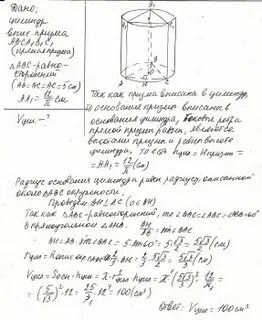 Дано:
цилиндр
впис. призма
ABCA₁B₁C₁
(прямая призма)
△ABC - равно-
сторонний
(AB=BC=AC=5см)
AA₁ = 12/π см
Vцил - ?
Так как призма вписана в цилиндр,
то основания призмы вписаны в
основания цилиндра, боковое ребро
прямой призмы
высотами призмы и
цилиндра, то есть hцил = hпризм =
= AA₁ = 12/π (см)
Радиус основания цилиндра равен радиусу описанной
около △ABC окружности.
Проведем BH⊥AC (O∈BH)
Так как △ABC - равносторонний, то ∠BAC=∠ABC=∠BCA=60°
В прямоугольном △ABH: BH/AB = sin∠BAC
BH = AB·sin∠BAC = 5·sin60° = 5·√3/2 = 5√3/2 (см)
BH = 2/3 · 5√3/2 = 5√3/3 (см)
Vцил = Sосн · hцил = π·r²цил · hцил = π(5√3/3)² · 12/π =
= (5/√3)² · 12 = 25/3 · 12 = 100 (см³)
Ответ: Vцил = 100 см³